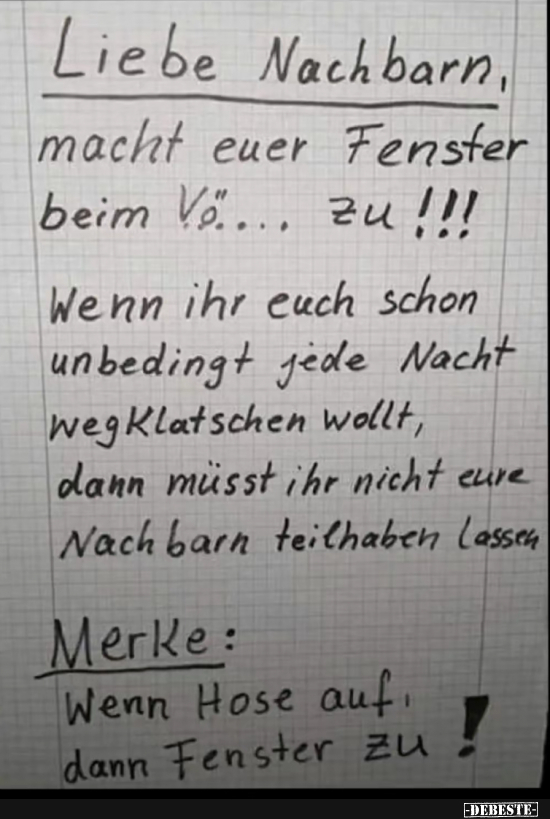 Liebe Nachbarn,
macht euer Fenster
beim Vö.... zu!!!
Wenn ihr euch schon
unbedingt jede Nacht
wegklatschen wollt,
dann müsst ihr nicht eure
Nachbarn teilhaben lassen
Merke:
Wenn Hose auf,
dann Fenster zu!
-DEBESTE-